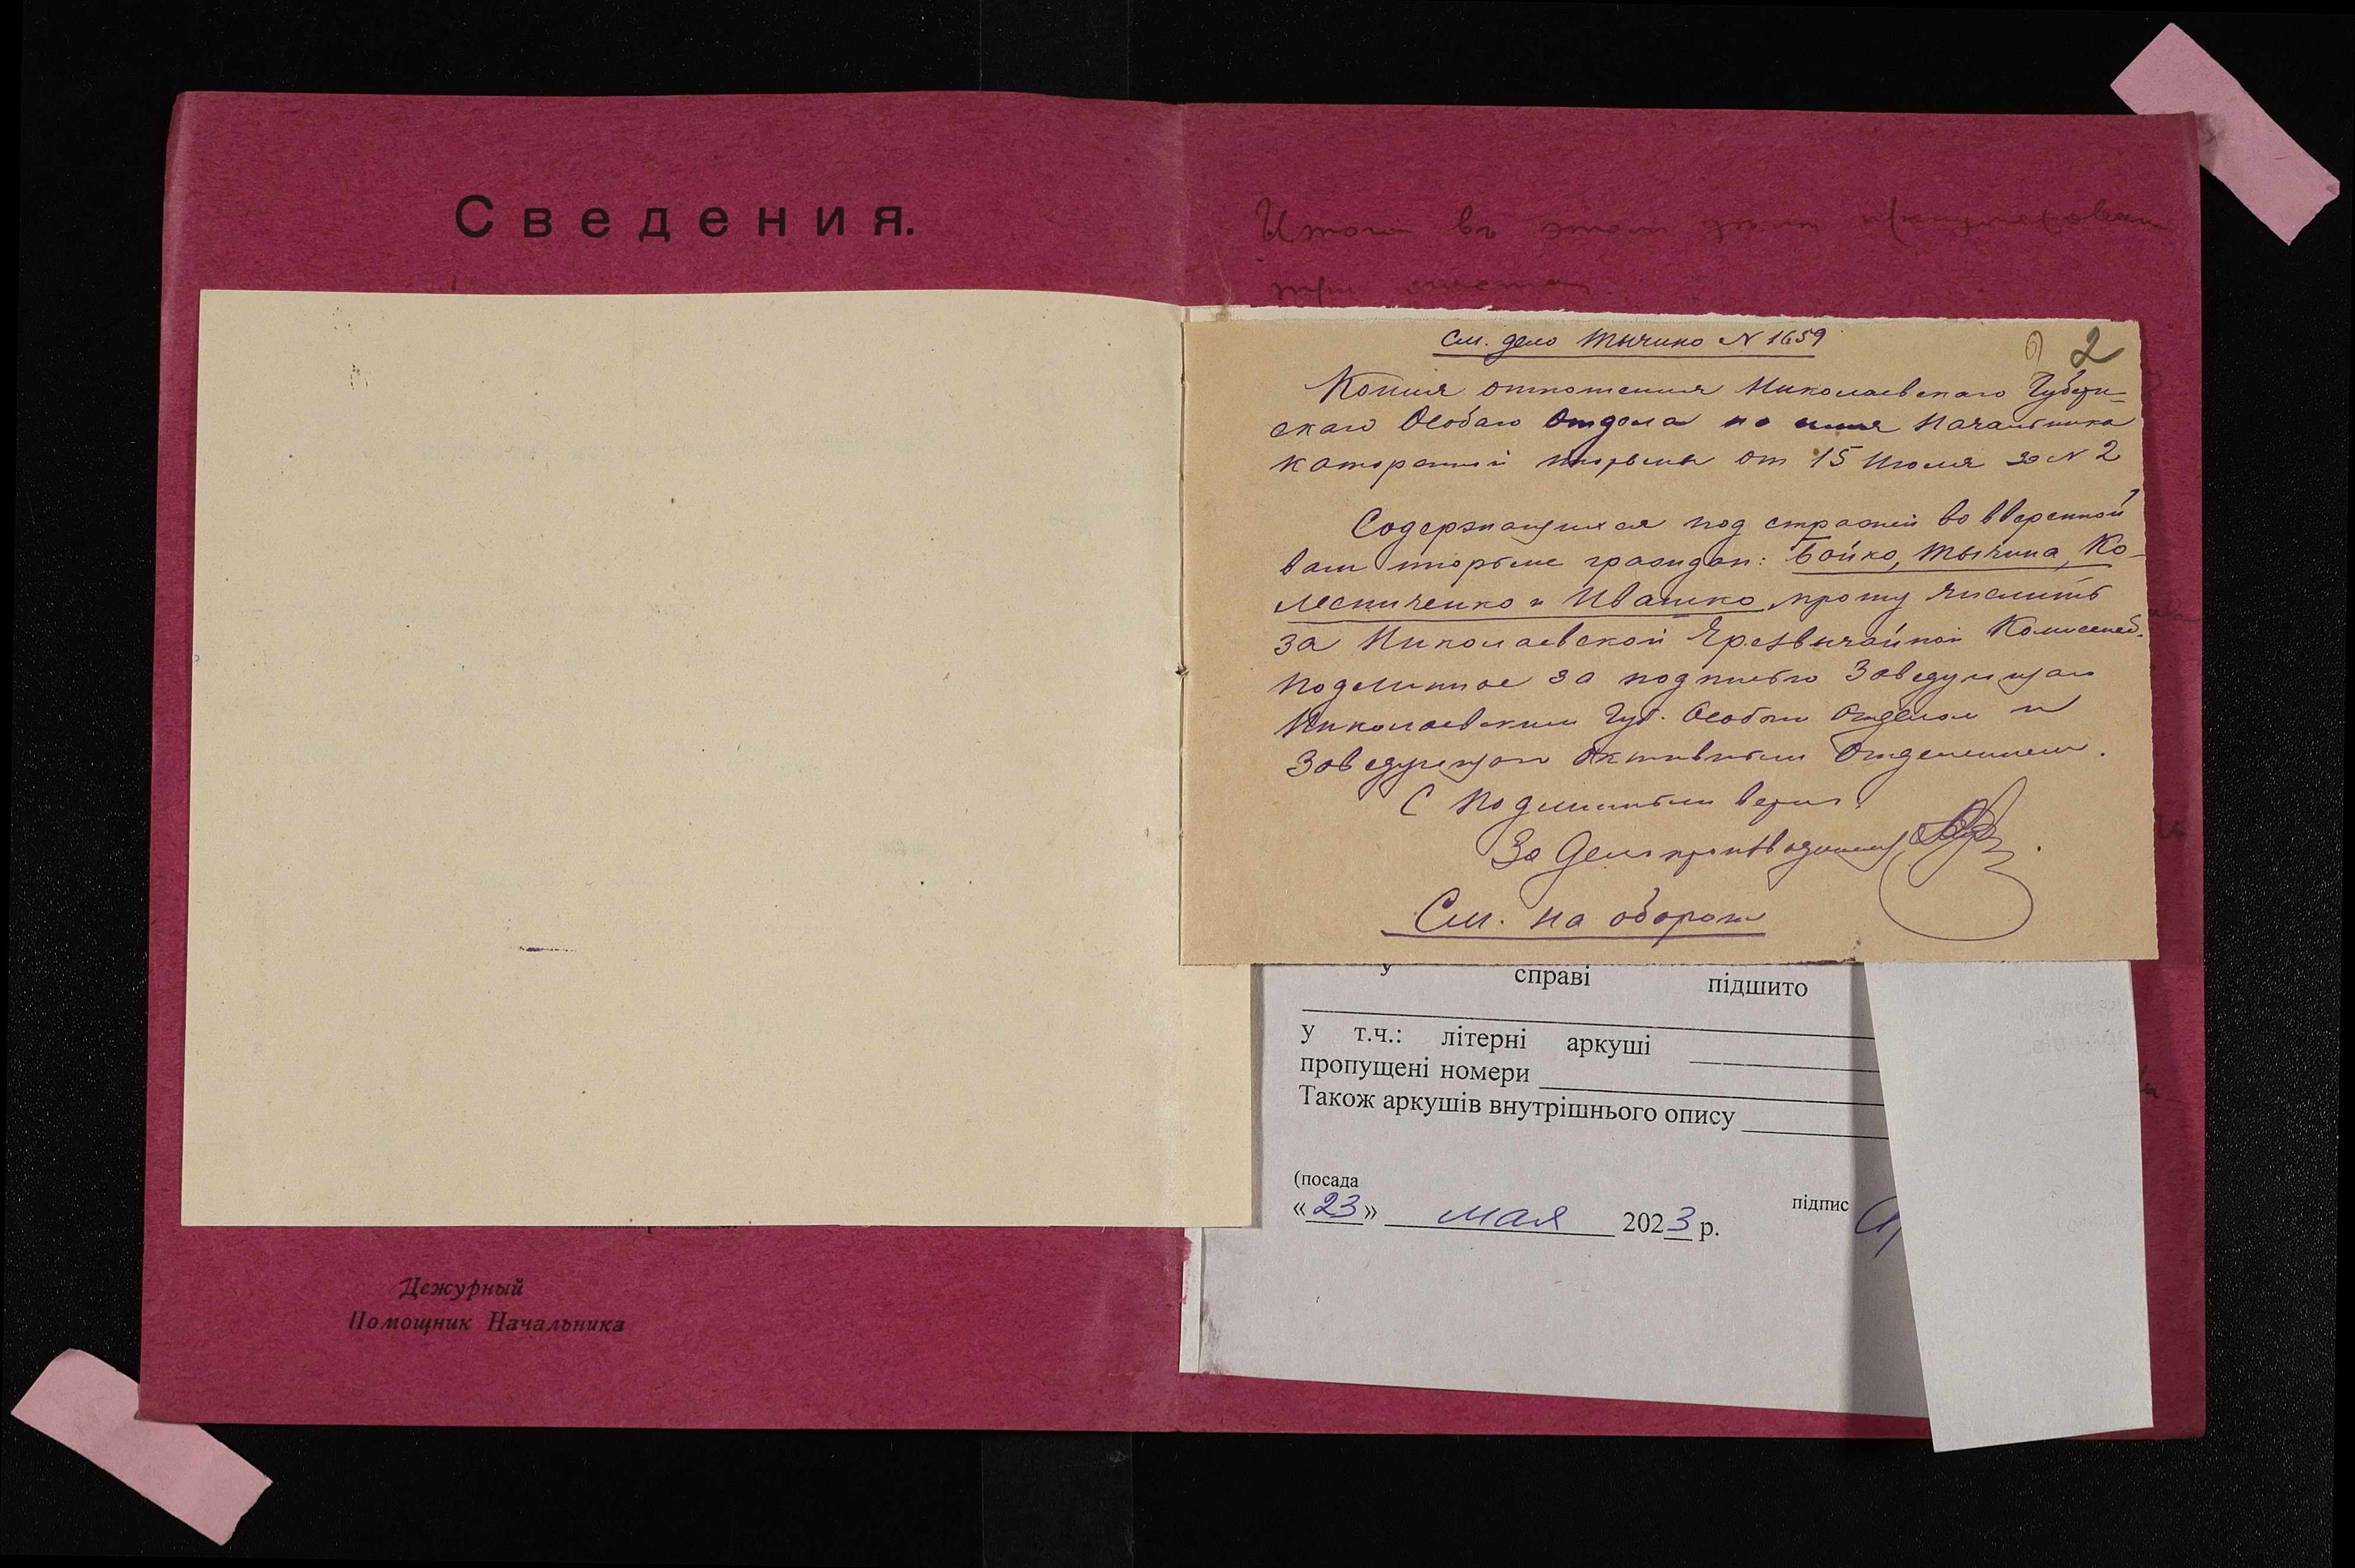 Сведения.
Дежурный
Помощник Начальника
Итого въ этом деле пронумерован
три листа
См. дело Тычино N 1659
2
Копия отношения Николаевскаго Губерн-
скаго Особаго Отдела на имя Начальника
каторжной тюрьмы от 15 Июля за N 2
Содержащихся под стражей во вверенной
вам тюрьме граждан: Бойко, Тычина, Ко-
лесниченко и Ивашко прошу числить
за Николаевской Чрезвычайной Комиссией.
Подлинное за подписью Заведующаго
Николаевским Губ. Особым Отделом и
Заведующаго Активным Отделением.
С подлинным верно:
За Делопроизводителя
См. на обороте
у справі підшито
у т.ч.: літерні аркуші
пропущені номери
Також аркушів внутрішнього опису
(посада
підпис
«23» мая 2023 р.